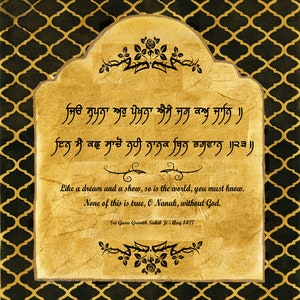 ਜਿਉ ਸੁਪਨਾ ਅਰੁ ਪੇਖਨਾ ਐਸੇ ਜਗ ਕਉ ਜਾਨਿ ॥
ਇਨ ਮੈ ਕਛੁ ਸਾਚੋ ਨਹੀ ਨਾਨਕ ਬਿਨ ਭਗਵਾਨ ॥੨੩॥
Like a dream and a show, so is the world, you must know.
None of this is true, O Nanak, without God.
Sri Guru Granth Sahib Ji - Ang 1427